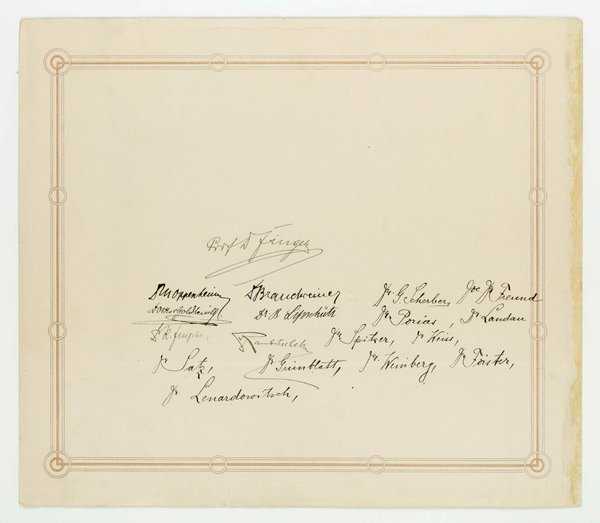 Prof Dr Finger
Dr M Oppenheim, Dr Brandweiner Dr G. Scherber, Doc Dr Freund
Dr B Lipschütz Dr Porias, Dr Landau
Dr Spitzer, Dr Weiss,
Dr Satz, Dr Grünblatt, Dr Weinberg, Dr Förster,
Dr Lenardowitsch,